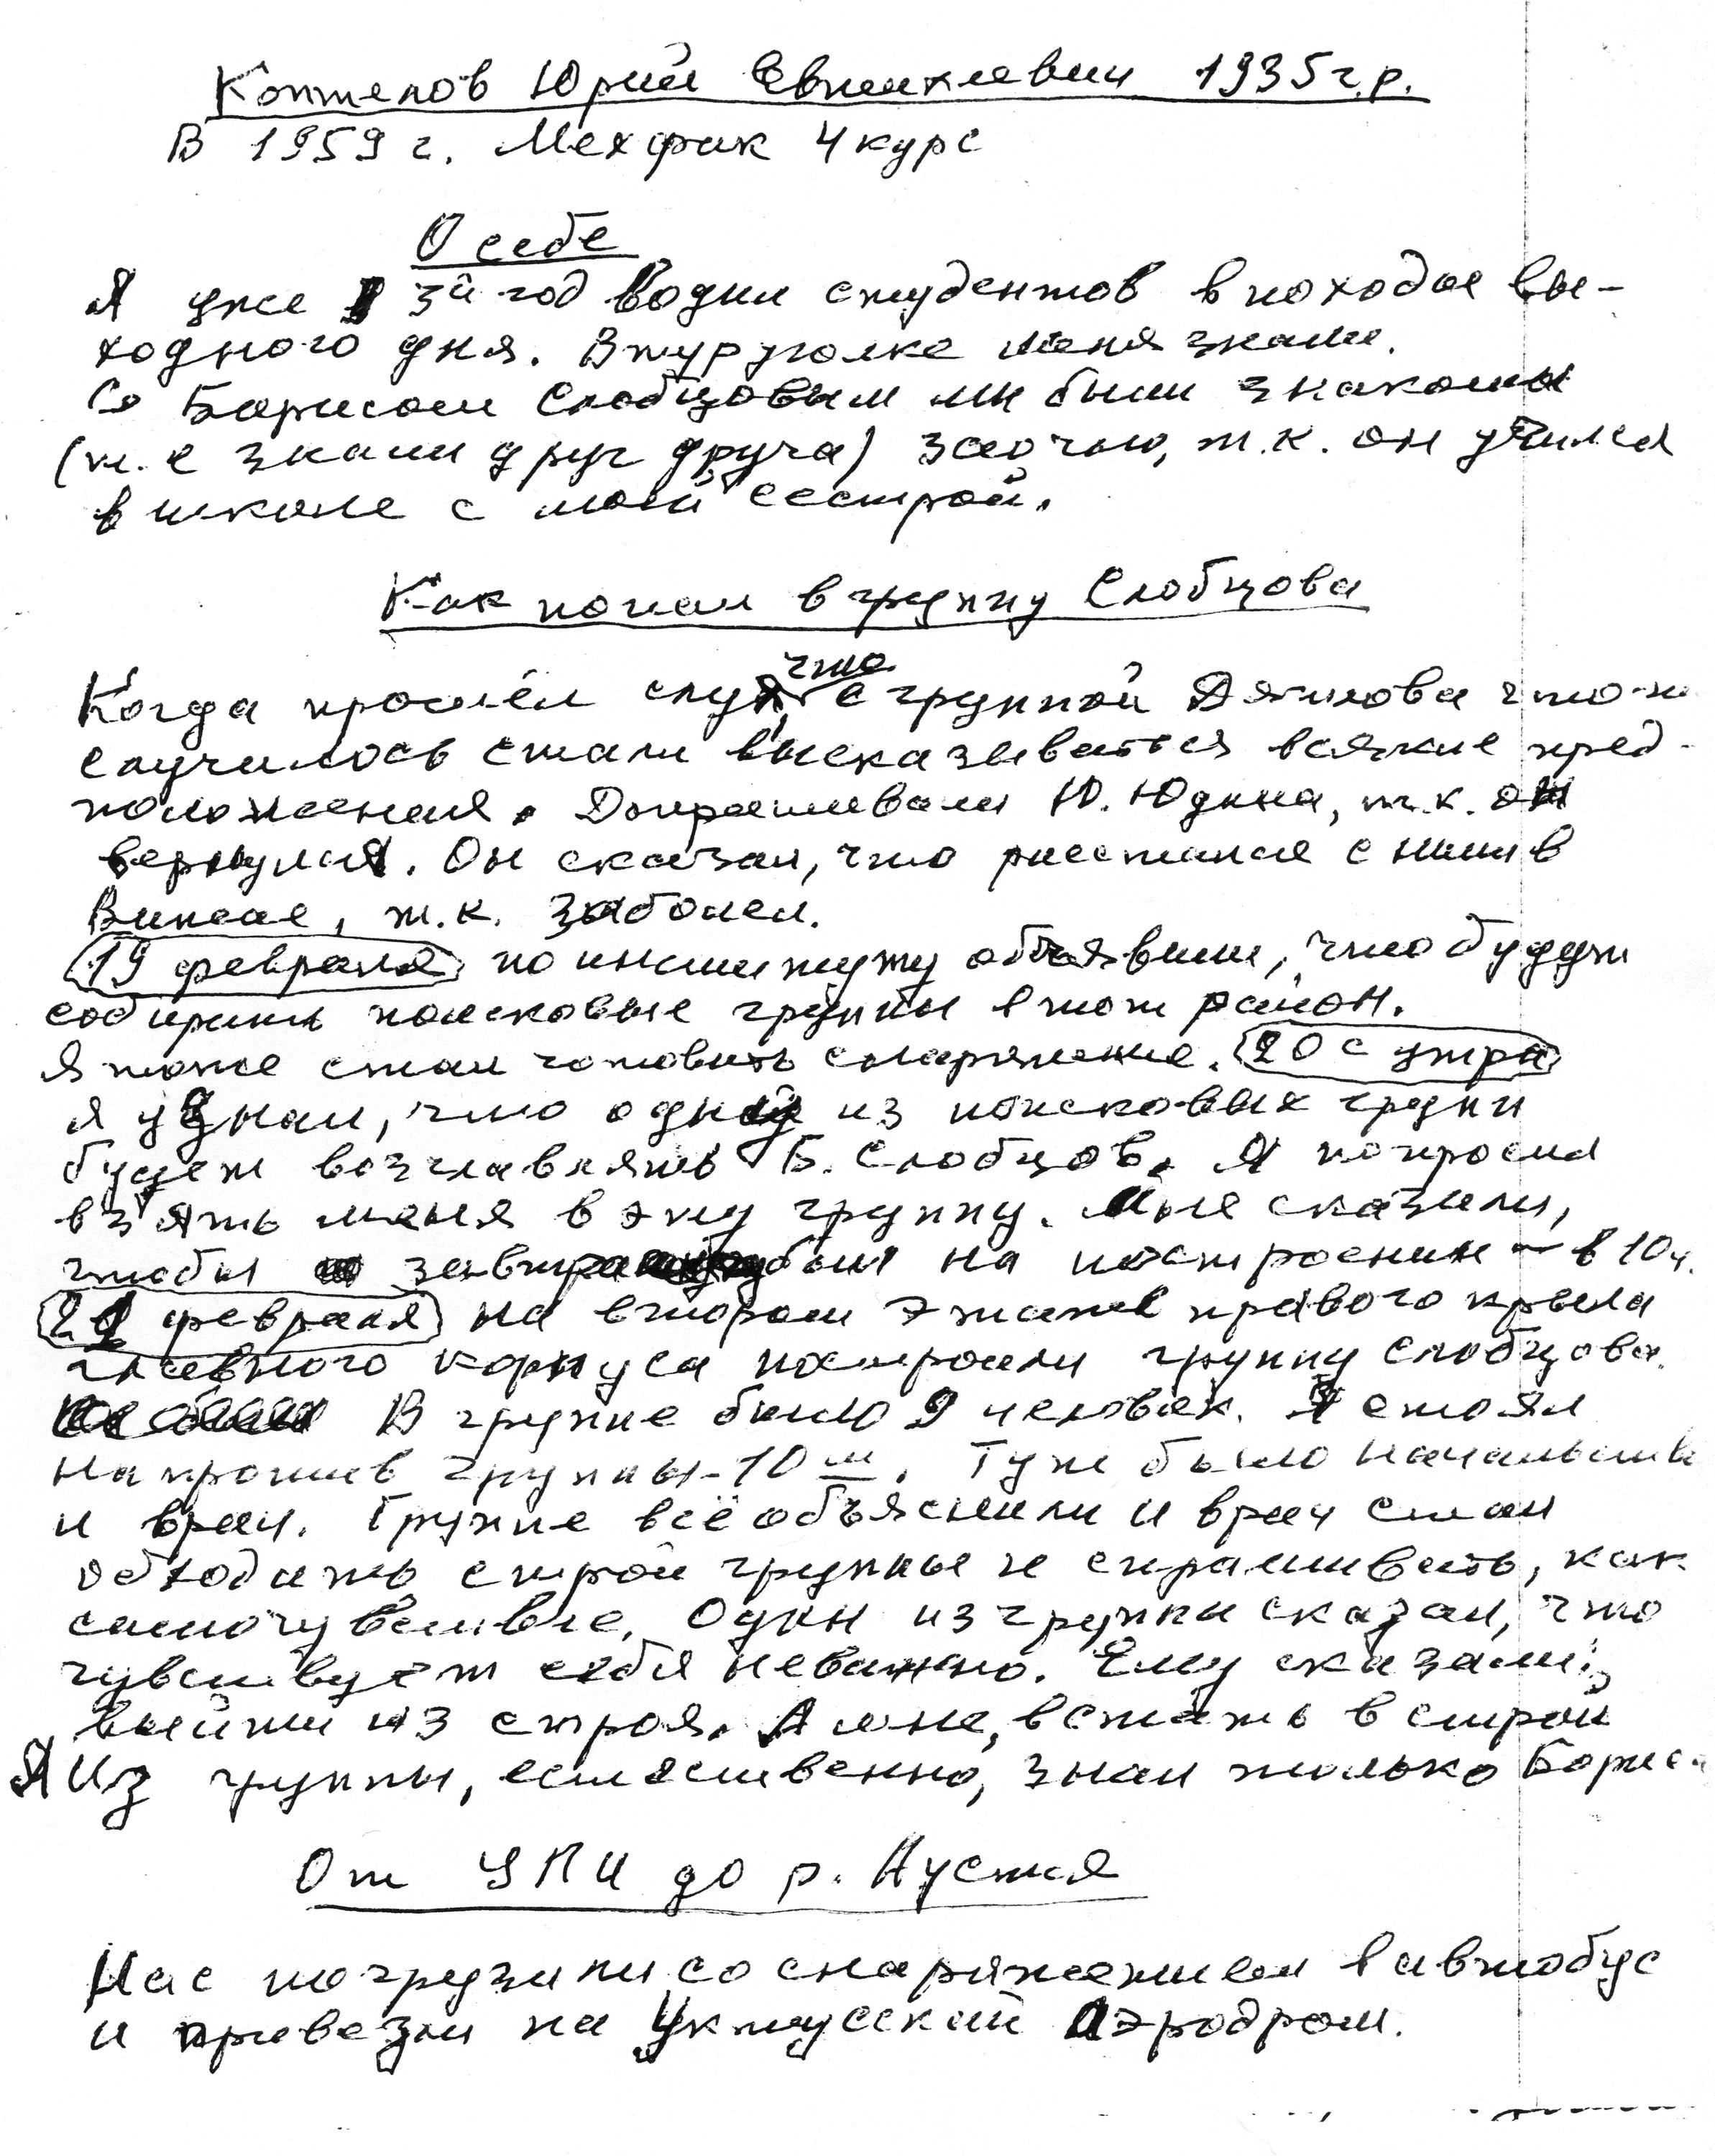 Коптелов Юрий Евгениевич 1935 г.р.
В 1959 г. Мехфак 4 курс
О себе
Я уже 3й год водил студентов в походы вы-
ходного дня. В турпоходе меня знали.
Со Борисом Слобцовым мы были знакомы
(т.е знали друг друга) заочно, т.к. он учился
в школе с моей сестрой.
Как попал в группу Слобцова
Когда прошёл слух, что с группой Дятлова что-то
случилось стали высказываться всякие пред-
положения. Допрашивали Ю. Юдина, т.к. он
вернулся. Он сказал, что расстался с ними в
Вижае, т.к. заболел.
19 февраля по институту объявили, что будут
собирать поисковые группы в тот район.
Я тоже стал готовить снаряжение. 20 с утра
я узнал, что одну из поисковых групп
будет возглавлять Б. Слобцов. Я попросил
взять меня в эту группу. Мне сказали,
чтобы завтра был на построении – в 10ч.
21 февраля на втором этаже правого крыла
главного корпуса построили группу Слобцова.
В группе было 9 человек. Я стоял
напротив группы - 10 й. Тут было начальство
и врач. Группе всё объяснили и врач стал
обходить строй группы и спрашивать, как
самочувствие. Один из группы сказал, что
чувствует себя неважно. Ему сказали:
выйти из строя. А мне, встать в строй
Я из группы, естественно, знал только Бориса
От УПИ до р. Ауспия
Нас погрузили со снаряжением в автобус
и привезли на Уктусский Аэродром.